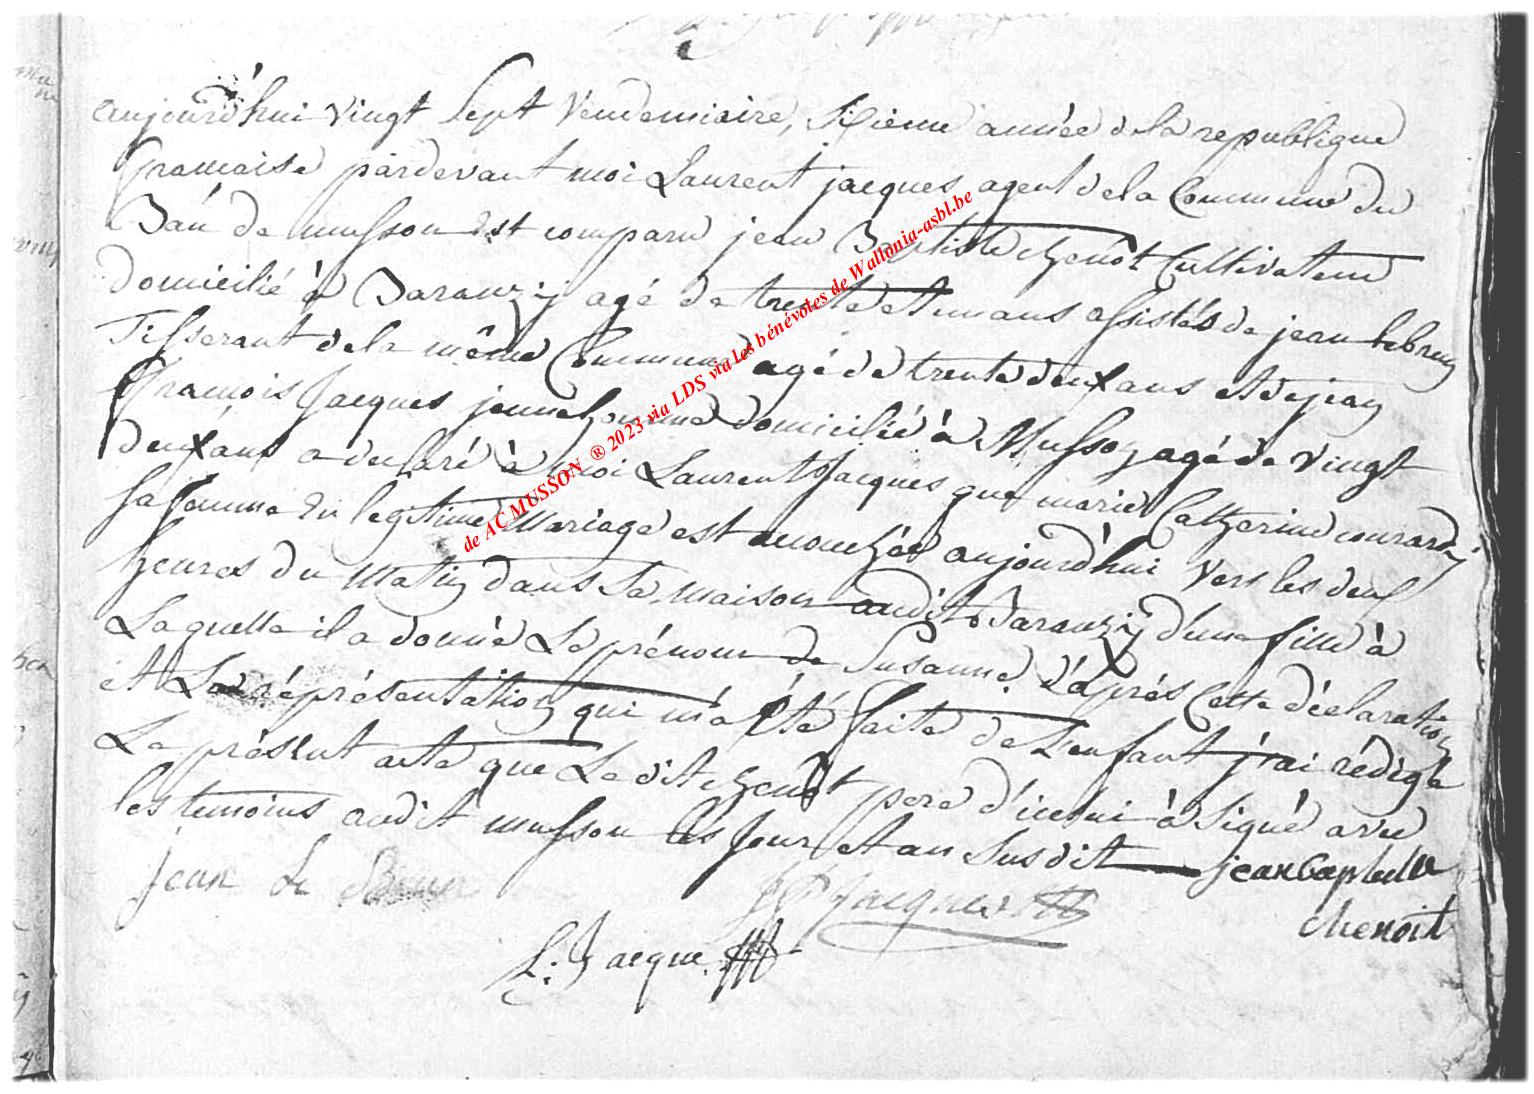 aujourd'hui vingt Sept Vendemiaire, Sixieme année de la republique
francaise pardevant moi Laurent jacques agent de la Commune du
Ban de musson est comparu jean Baptiste chenot Cultivateur
domicilié à Baranzy agé de trente et un ans assistés de jean lebrun
Tisserant de la même Commune agé de trente deux ans et de jean
françois Jacques jeune homme domicilié à Musson agé de vingt
deux ans a declaré à moi Laurent Jacques que marie Catherine
sa femme En legitime Mariage est accouchée aujourd'hui vers les deux
heures du Matin dans Sa maison audit Baranzy d'une fille à
Laquelle il a donné Le prénom de Susanne. d'après Cette déclaration
et La représentation qui m'a été faite de L'enfant j'ai rédigé
Le présent acte que Le dit chenot pere d'icelui à Signé avec
les temoins audit musson les Jour et an Susdit jean Baptiste
jean Le Brun JF Jacques chenoit
L. Jacque
de AC MUSSON ® 2023 via LDS via Les bénévoles de Wallonia-asbl.be